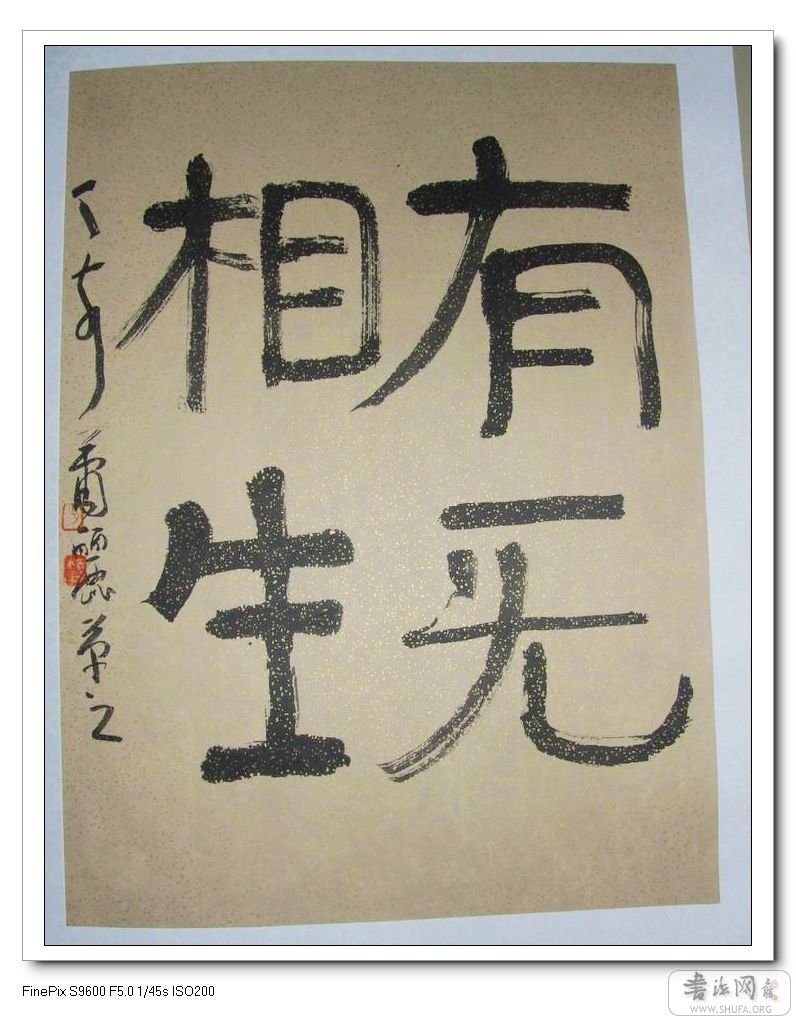 有无
相生
丁亥
FinePix S9600 F5.0 1/45s ISO200
書法网
WWW.SHUFA.ORG